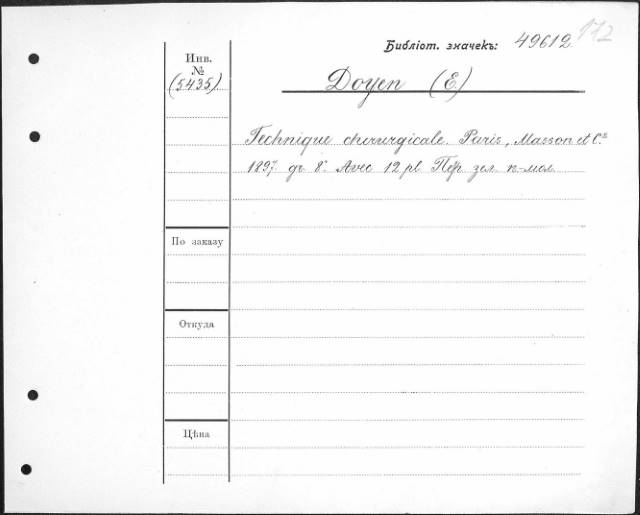 Библіот. значекъ: 49612 172
Инв.
№
(5435)
Doyen (E)
Technique chirurgicale. Paris, Masson et C.ie
1897. gr 8°. Avec 12 pl. Пер. зел. к-мол.
По заказу
Откуда
Цѣна